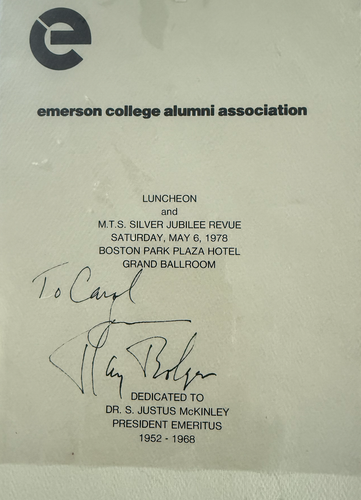 e
emerson college alumni association
LUNCHEON
and
M.T.S. SILVER JUBILEE REVUE
SATURDAY, MAY 6, 1978
BOSTON PARK PLAZA HOTEL
GRAND BALLROOM
To Carol
Ray Bolger
DEDICATED TO
DR. S. JUSTUS McKINLEY
PRESIDENT EMERITUS
1952 - 1968